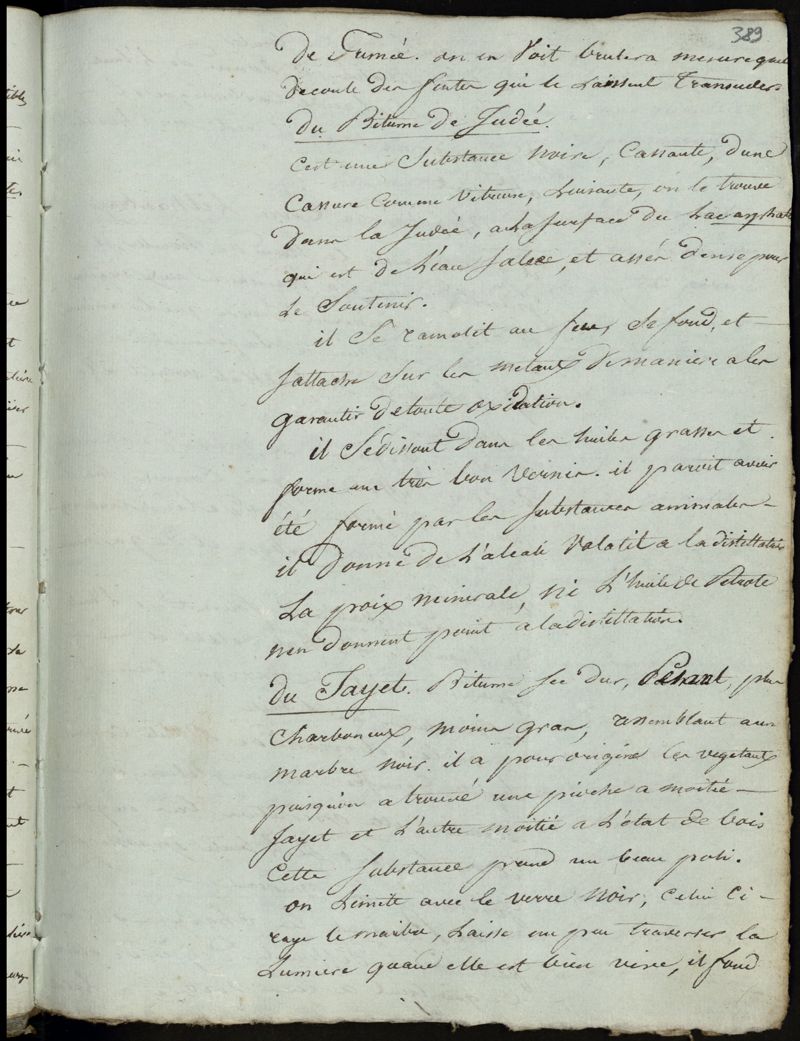 389
de Fumeé. on en Voit bruler a mesure quil
decoule des fentes qui le Laissent Transuder
Du Bitume de Judeé.
C'est une Substance noire, Cassante, d'une
Cassure Comme Vitreuse, Luisante, on le trouve
Dans la Judeé, a la Surface du Lac asphalt
qui est de L'eau Saleé, et assés Dense pour
Le Soutenir.
il Se ramolit au feu, Se fond, et
s'attache Sur les metaux De maniere a les
garantir De toute oxidation.
il Se dissout Dans les huiles grasses et
forme un très bon Vernis. il paroit avoir
été formé par les Substances animales
il Donne de L'alcali Volatil a la distillation
La poix minerale ni L'huile de Petrole
n'en Donnent point a la distillation.
Du Jayet. Bitume sec Dur, Pesant, plus
Charboneux, moins gras, ressemblant au
marbre noir. il a pour origine les vegetaux
puisqu'on a trouvé une pioche a moitié
Jayet et L'autre moitié a L'état de bois
Cette Substance prend un beau poli.
on L'imite avec le verre noir, Celui Ci
raye le marbre, Laisse un peu traverser la
Lumiere quand elle est bien vive, il fond